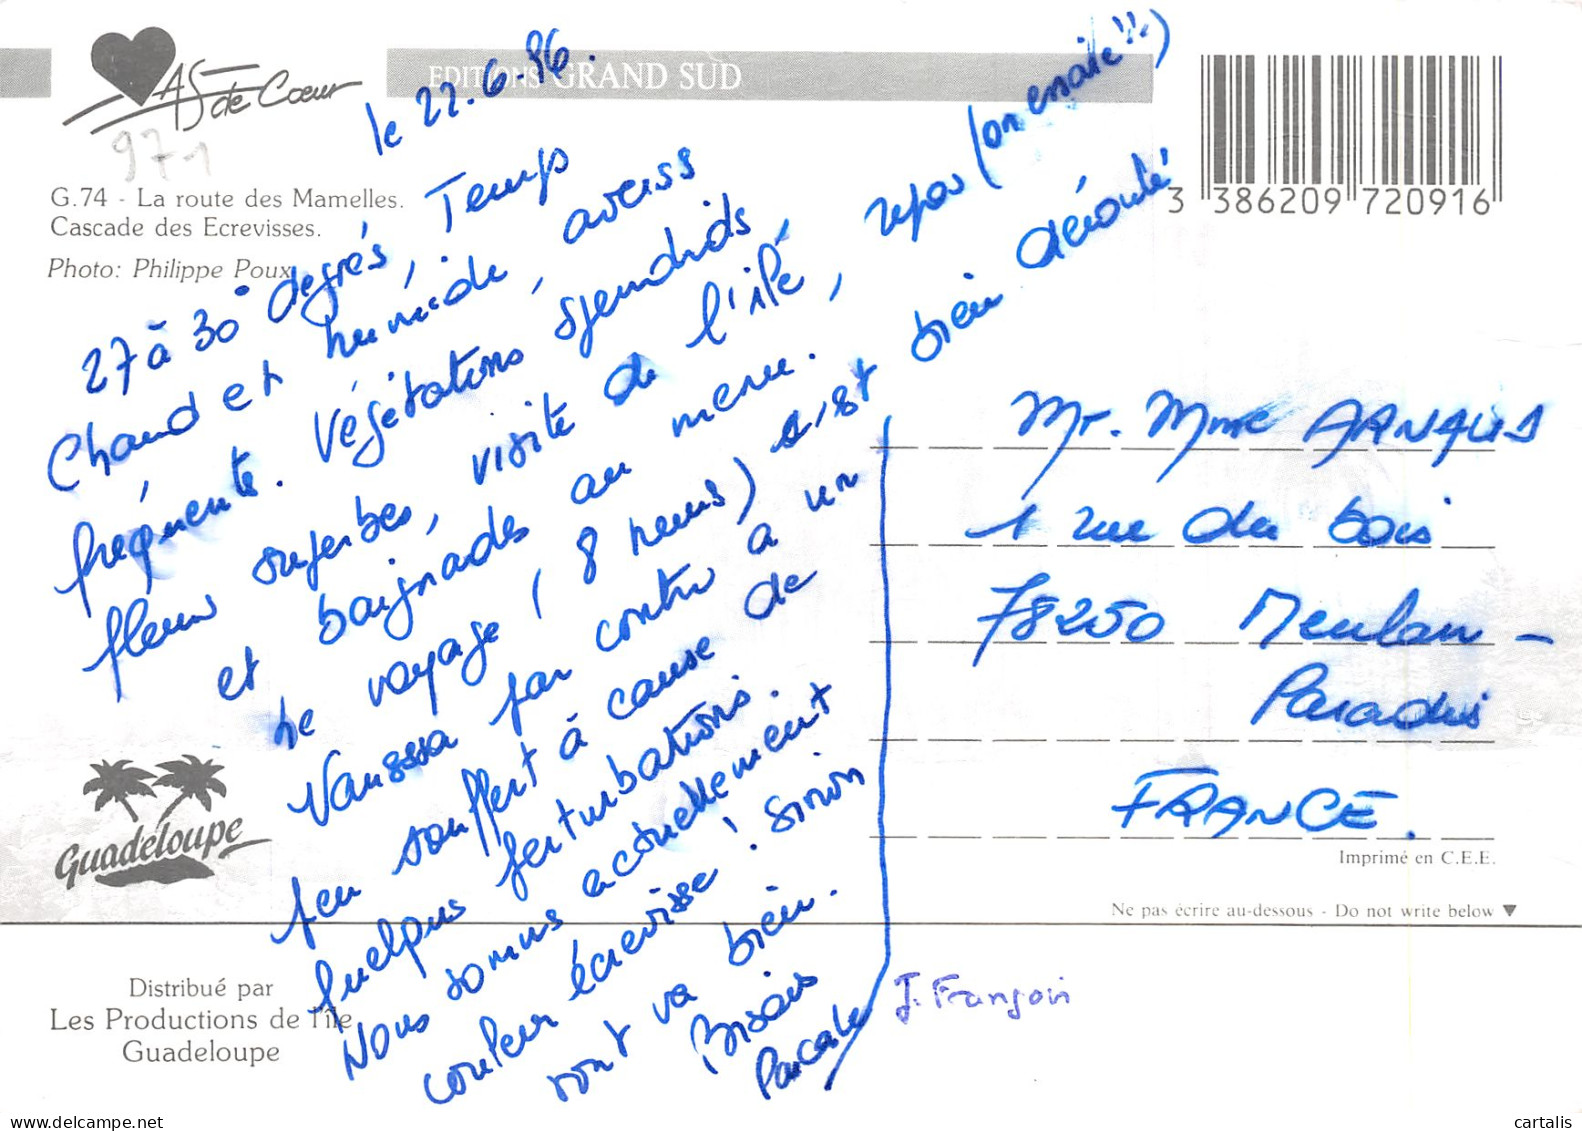 As de Cœur
EDITIONS GRAND SUD
971
G.74 - La route des Mamelles.
Cascade des Ecrevisses.
Photo: Philippe Poux
3 386209 720916
le 22.6.96.
27 à 30° degrés, Temps
Chaud et humide, averses
fréquentes. Végétations splendides,
fleurs superbes, visite de l'île, repos (on essaie!!)
et baignades au menu.
Le voyage (8 heures) s'est bien déroulé
Vanessa par contre a un
peu souffert à cause de
quelques perturbations.
Nous sommes actuellement
couleur écrevisse! Sinon
tout va bien.
Bisous
Pascale
J. François
Mr. Mme ARNAUD
1 rue du bois
78250 Meulan -
Paradis
FRANCE.
Guadeloupe
Imprimé en C.E.E.
Ne pas écrire au-dessous - Do not write below ▼
Distribué par
Les Productions de l'île
Guadeloupe
cartalis